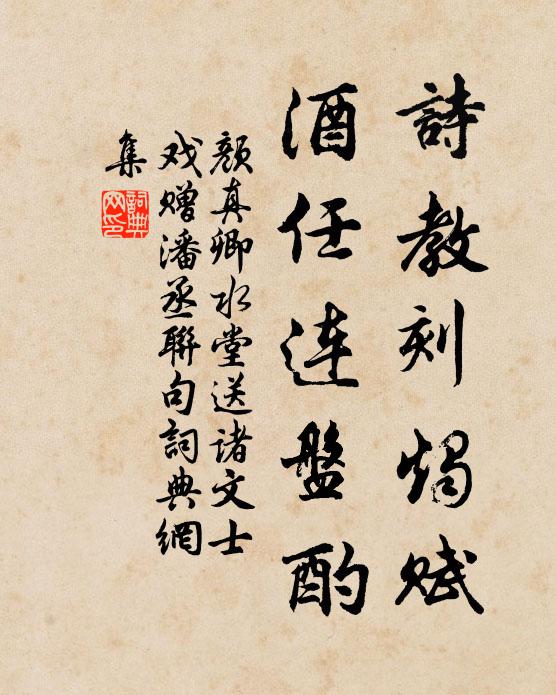 詩教刻燭赋
酒任连盤酌
颜真卿水堂送诸文士
戏赠潘丞聯句詞典網
集
詞典网印